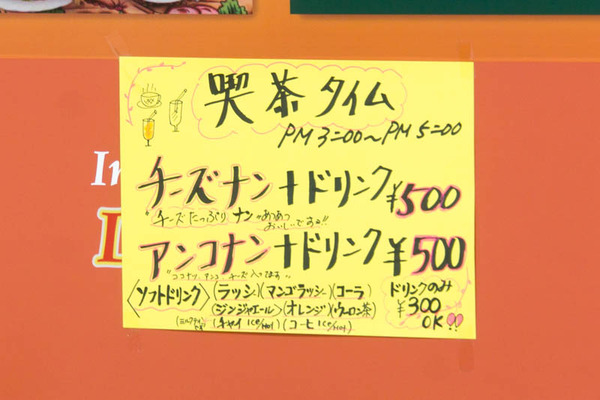 喫茶タイム
PM 3:00～PM 5:00
チーズナン+ドリンク ¥500
チーズたっぷり ナン あつあつ
おいしいです!!
アンコナン+ドリンク ¥500
ココナツ アンコ チーズ入ってます
〈ソフトドリンク〉(ラッシー)(マンゴラッシー)(コーラ)
(ジンジャエール)(オレンジ)(ウーロン茶)
(チャイ ICE/HOT)(コーヒ ICE/HOT)
ドリンクのみ
¥300
OK!!
In